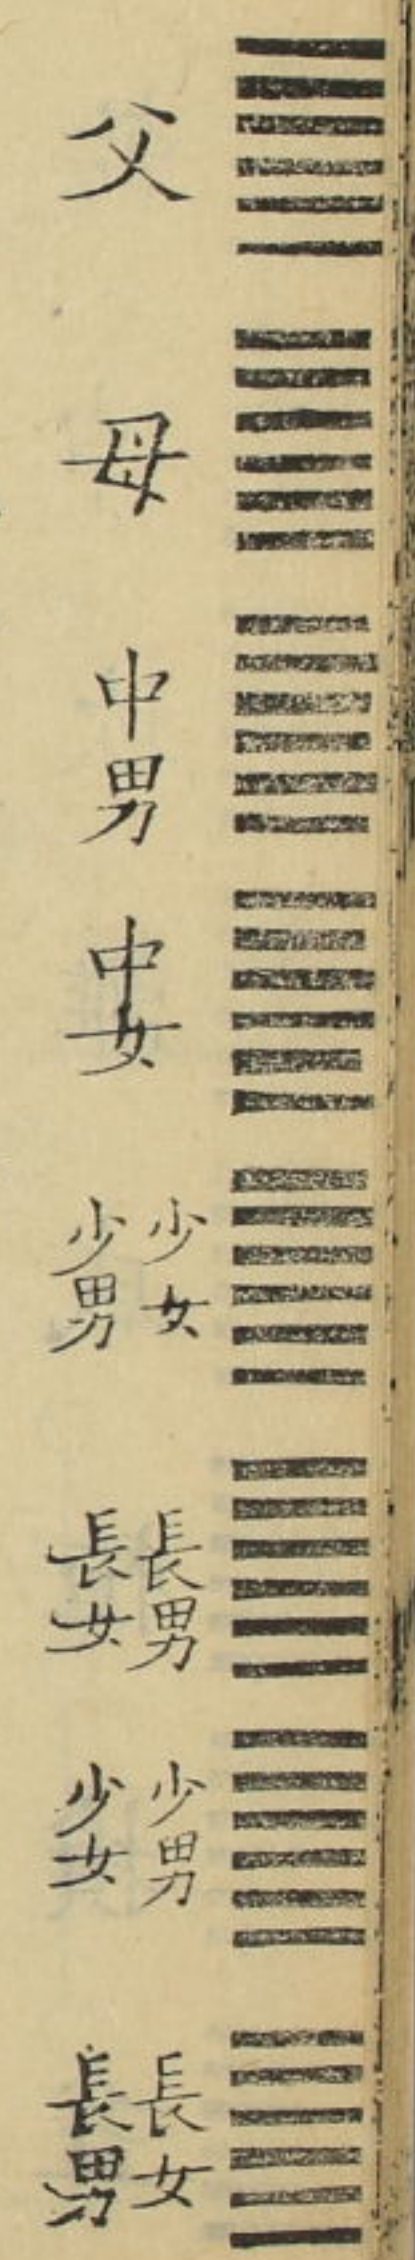 父
母
中男
中女
少女
少男
長男
長女
少男
少女
長女
長男